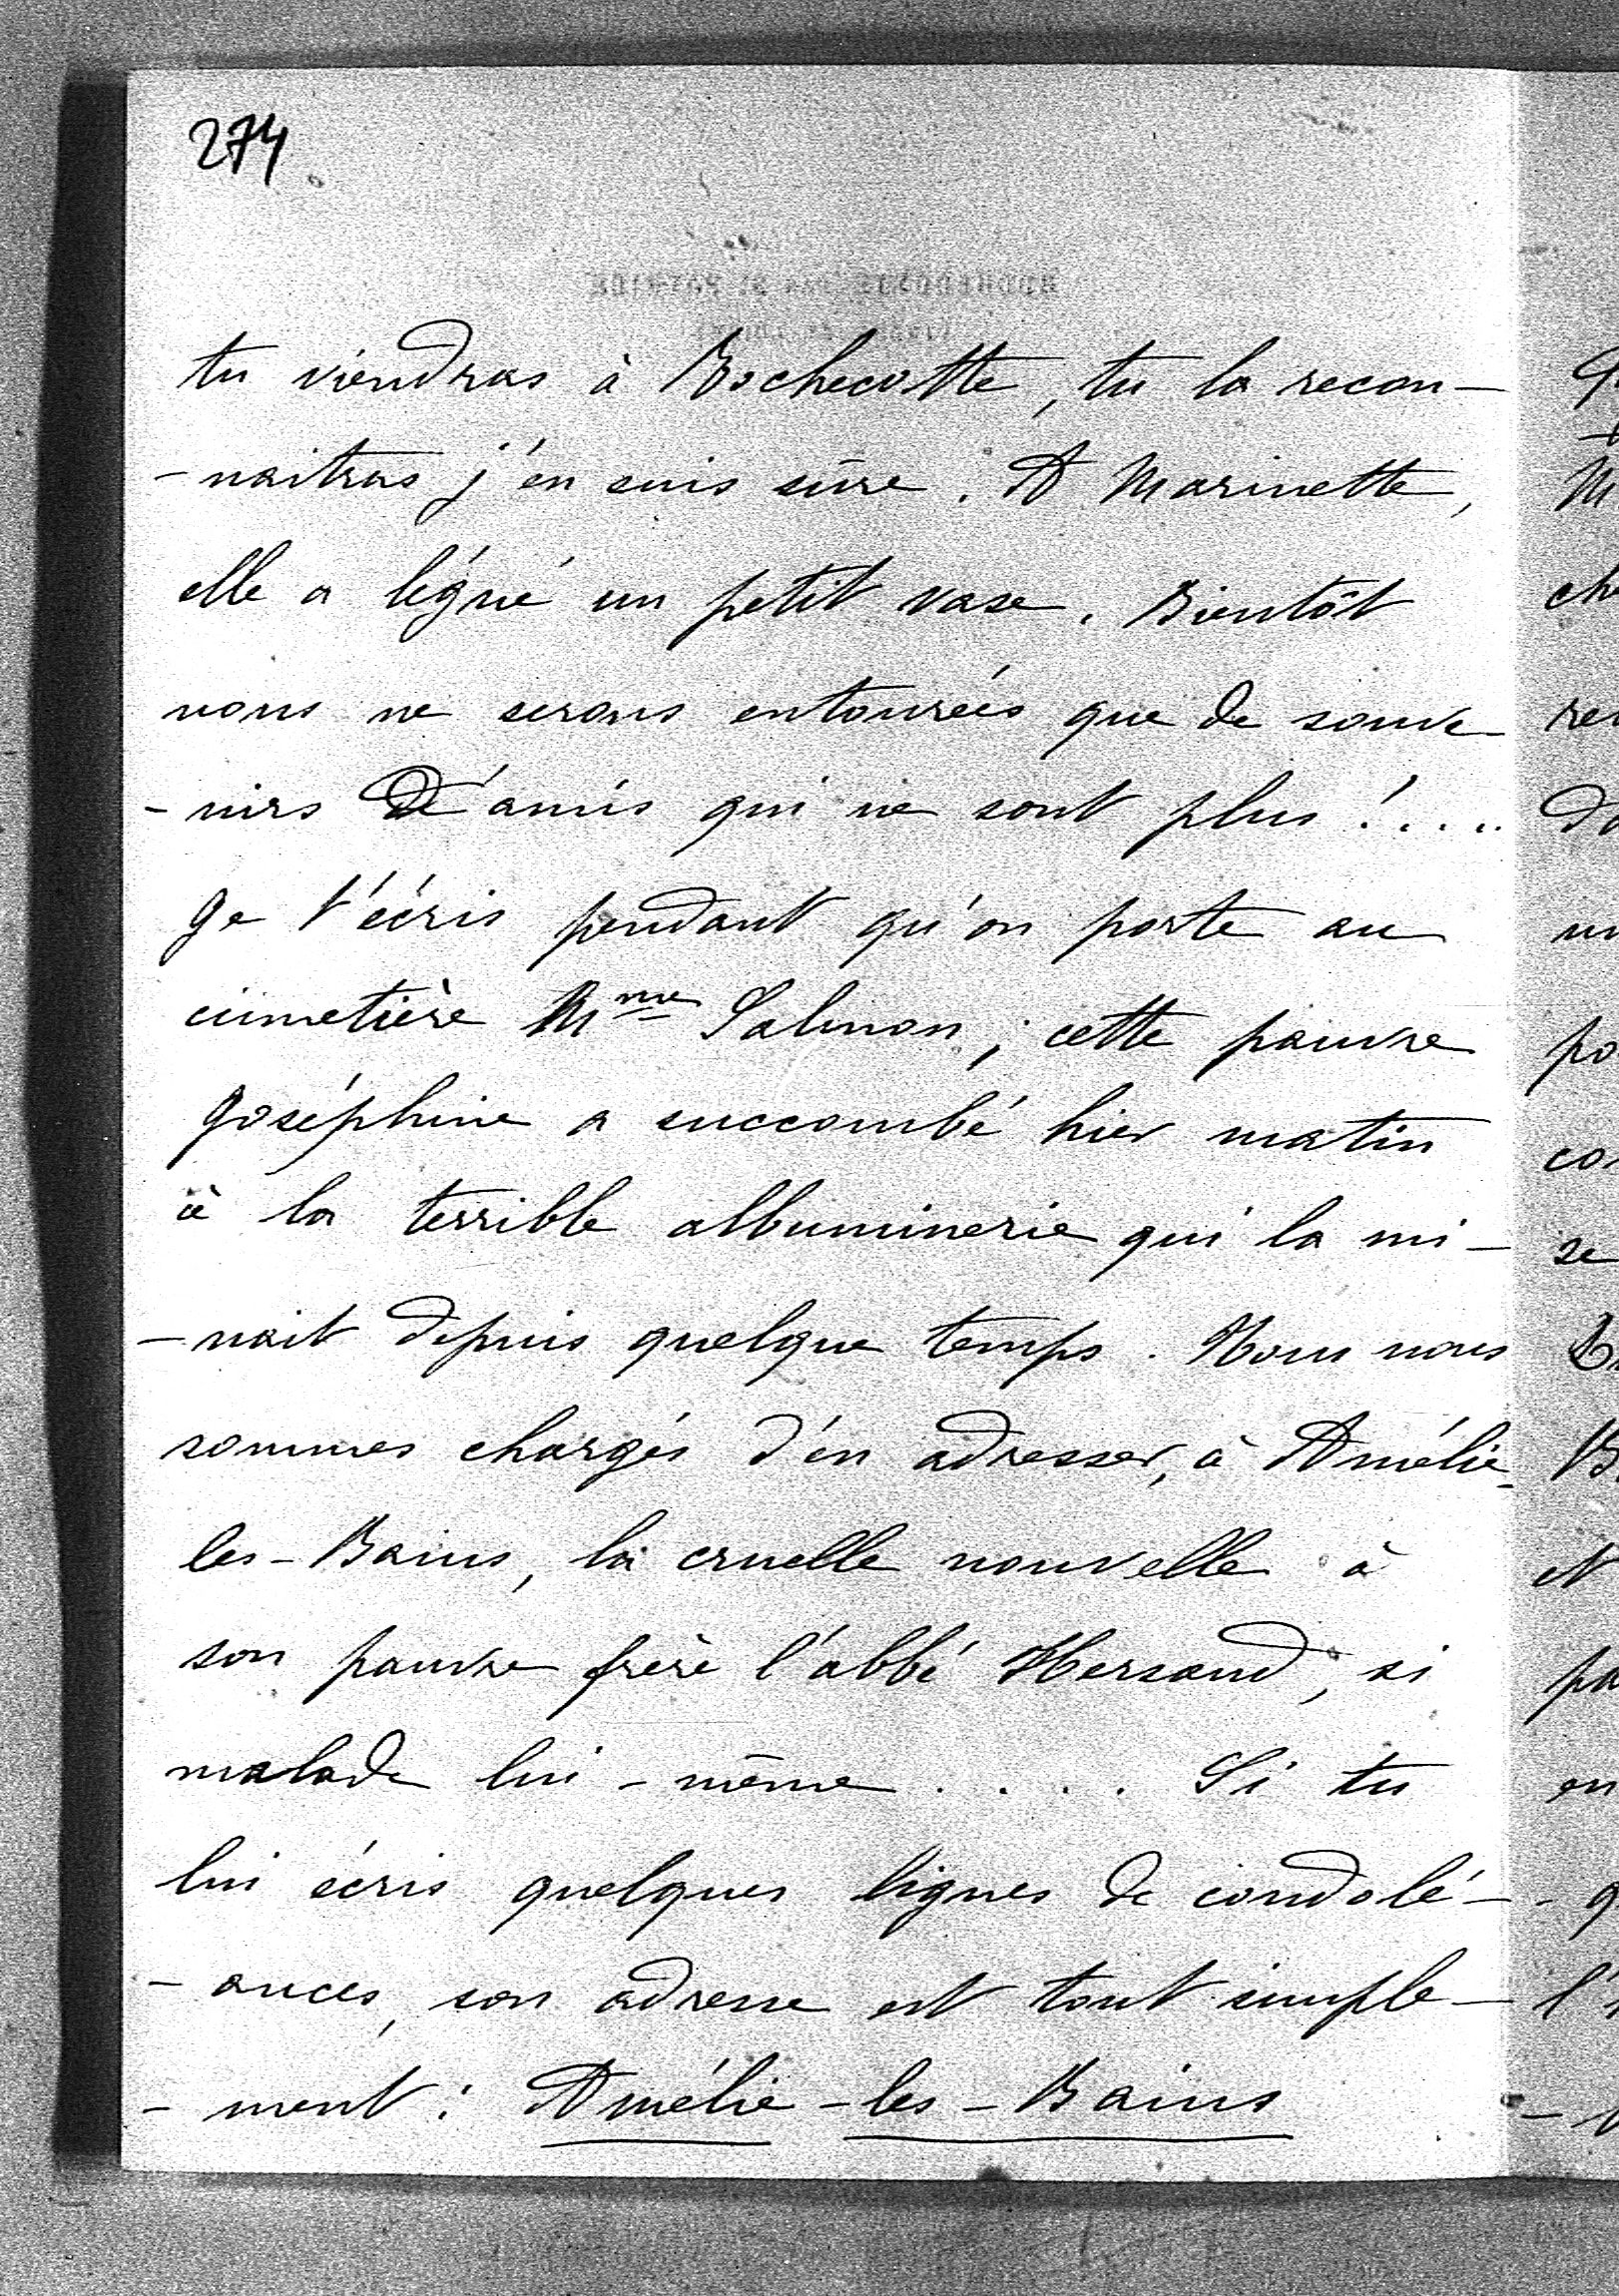 274
tu viendras à Rochecotte, tu la recon-
-naitras j'en suis sûre. A Marinette,
elle a légué un petit vase. Bientôt
nous ne serons entourées que de souve-
-nirs d'amis qui ne sont plus!....
Je t'écris pendant qu'on porte au
cimetière Mme Salmon; cette pauvre
Joséphine a succombé hier matin
à la terrible albuminerie qui la mi-
-nait depuis quelque temps. Nous nous
sommes chargés d'en adresser, à Amélie-
les-Bains, la cruelle nouvelle à
son pauvre frère l'abbé Hersand, si
malade lui-même.... Si tu
lui écris quelques lignes de condolé-
-ances, son adresse est tout simple-
-ment: Amélie-les-Bains